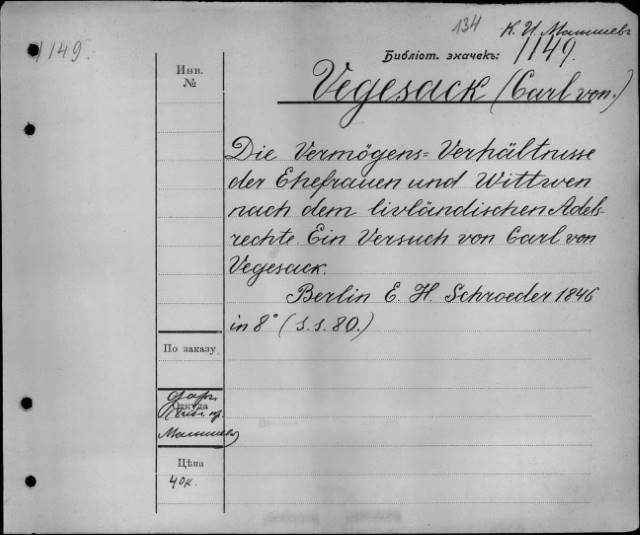 134 К. И. Малышевъ
1149.
Библіот. значекъ: 1149.
Инв.
№
Vegesack (Carl von.)
Die Vermögens=Verhältnisse
der Ehefrauen und Wittwen
nach dem livländischen Adels-
rechte. Ein Versuch von Carl von
Vegesack.
Berlin E. H. Schroeder 1846
in 8° (s.s. 80.)
По заказу
Откуда
Малышевъ
Цѣна
40к.